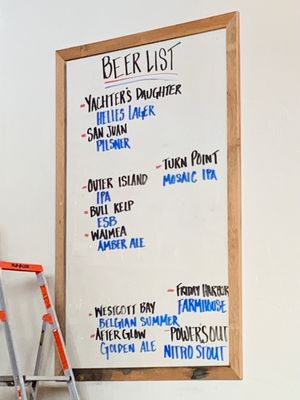 BEER LIST
- YACHTER'S DAUGHTER
HELLES LAGER
- SAN JUAN
PILSNER
- TURN POINT
MOSAIC IPA
- OUTER ISLAND
IPA
- BULL KELP
ESB
- WAIMEA
AMBER ALE
- FRIDAY HARBOR
FARMHOUSE
- WESTCOTT BAY
BELGIAN SUMMER
- AFTER GLOW
GOLDEN ALE
- POWER'S OUT
NITRO STOUT